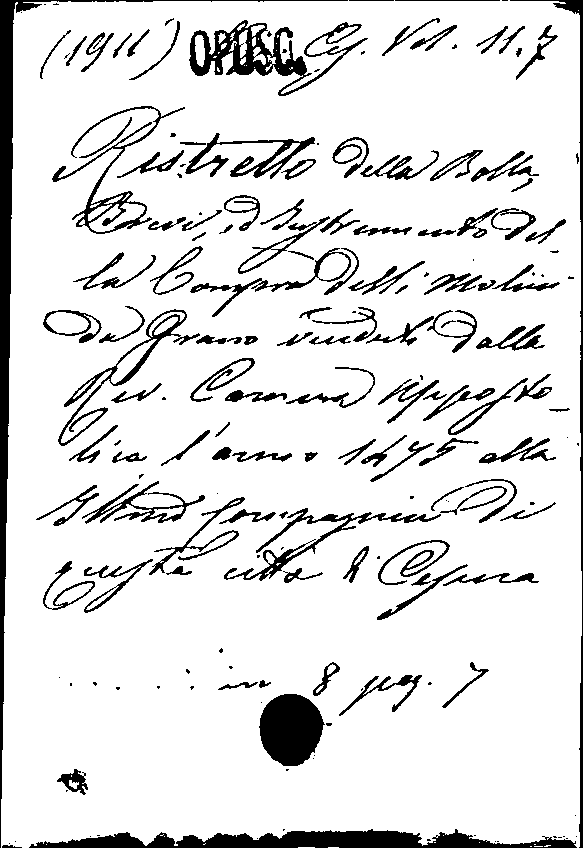 (1911) OPUSC. Vol. 11.7
Ristretto della Bolla,
Brevi, ed Instrumento del
la Compra delli Molini
da Grano venduti dalla
Rev. Camera Apposto_
lica l'anno 1475 alla
Illma Compagnia di
questa città di Cesena
. . . . . . in 8 pag. 7